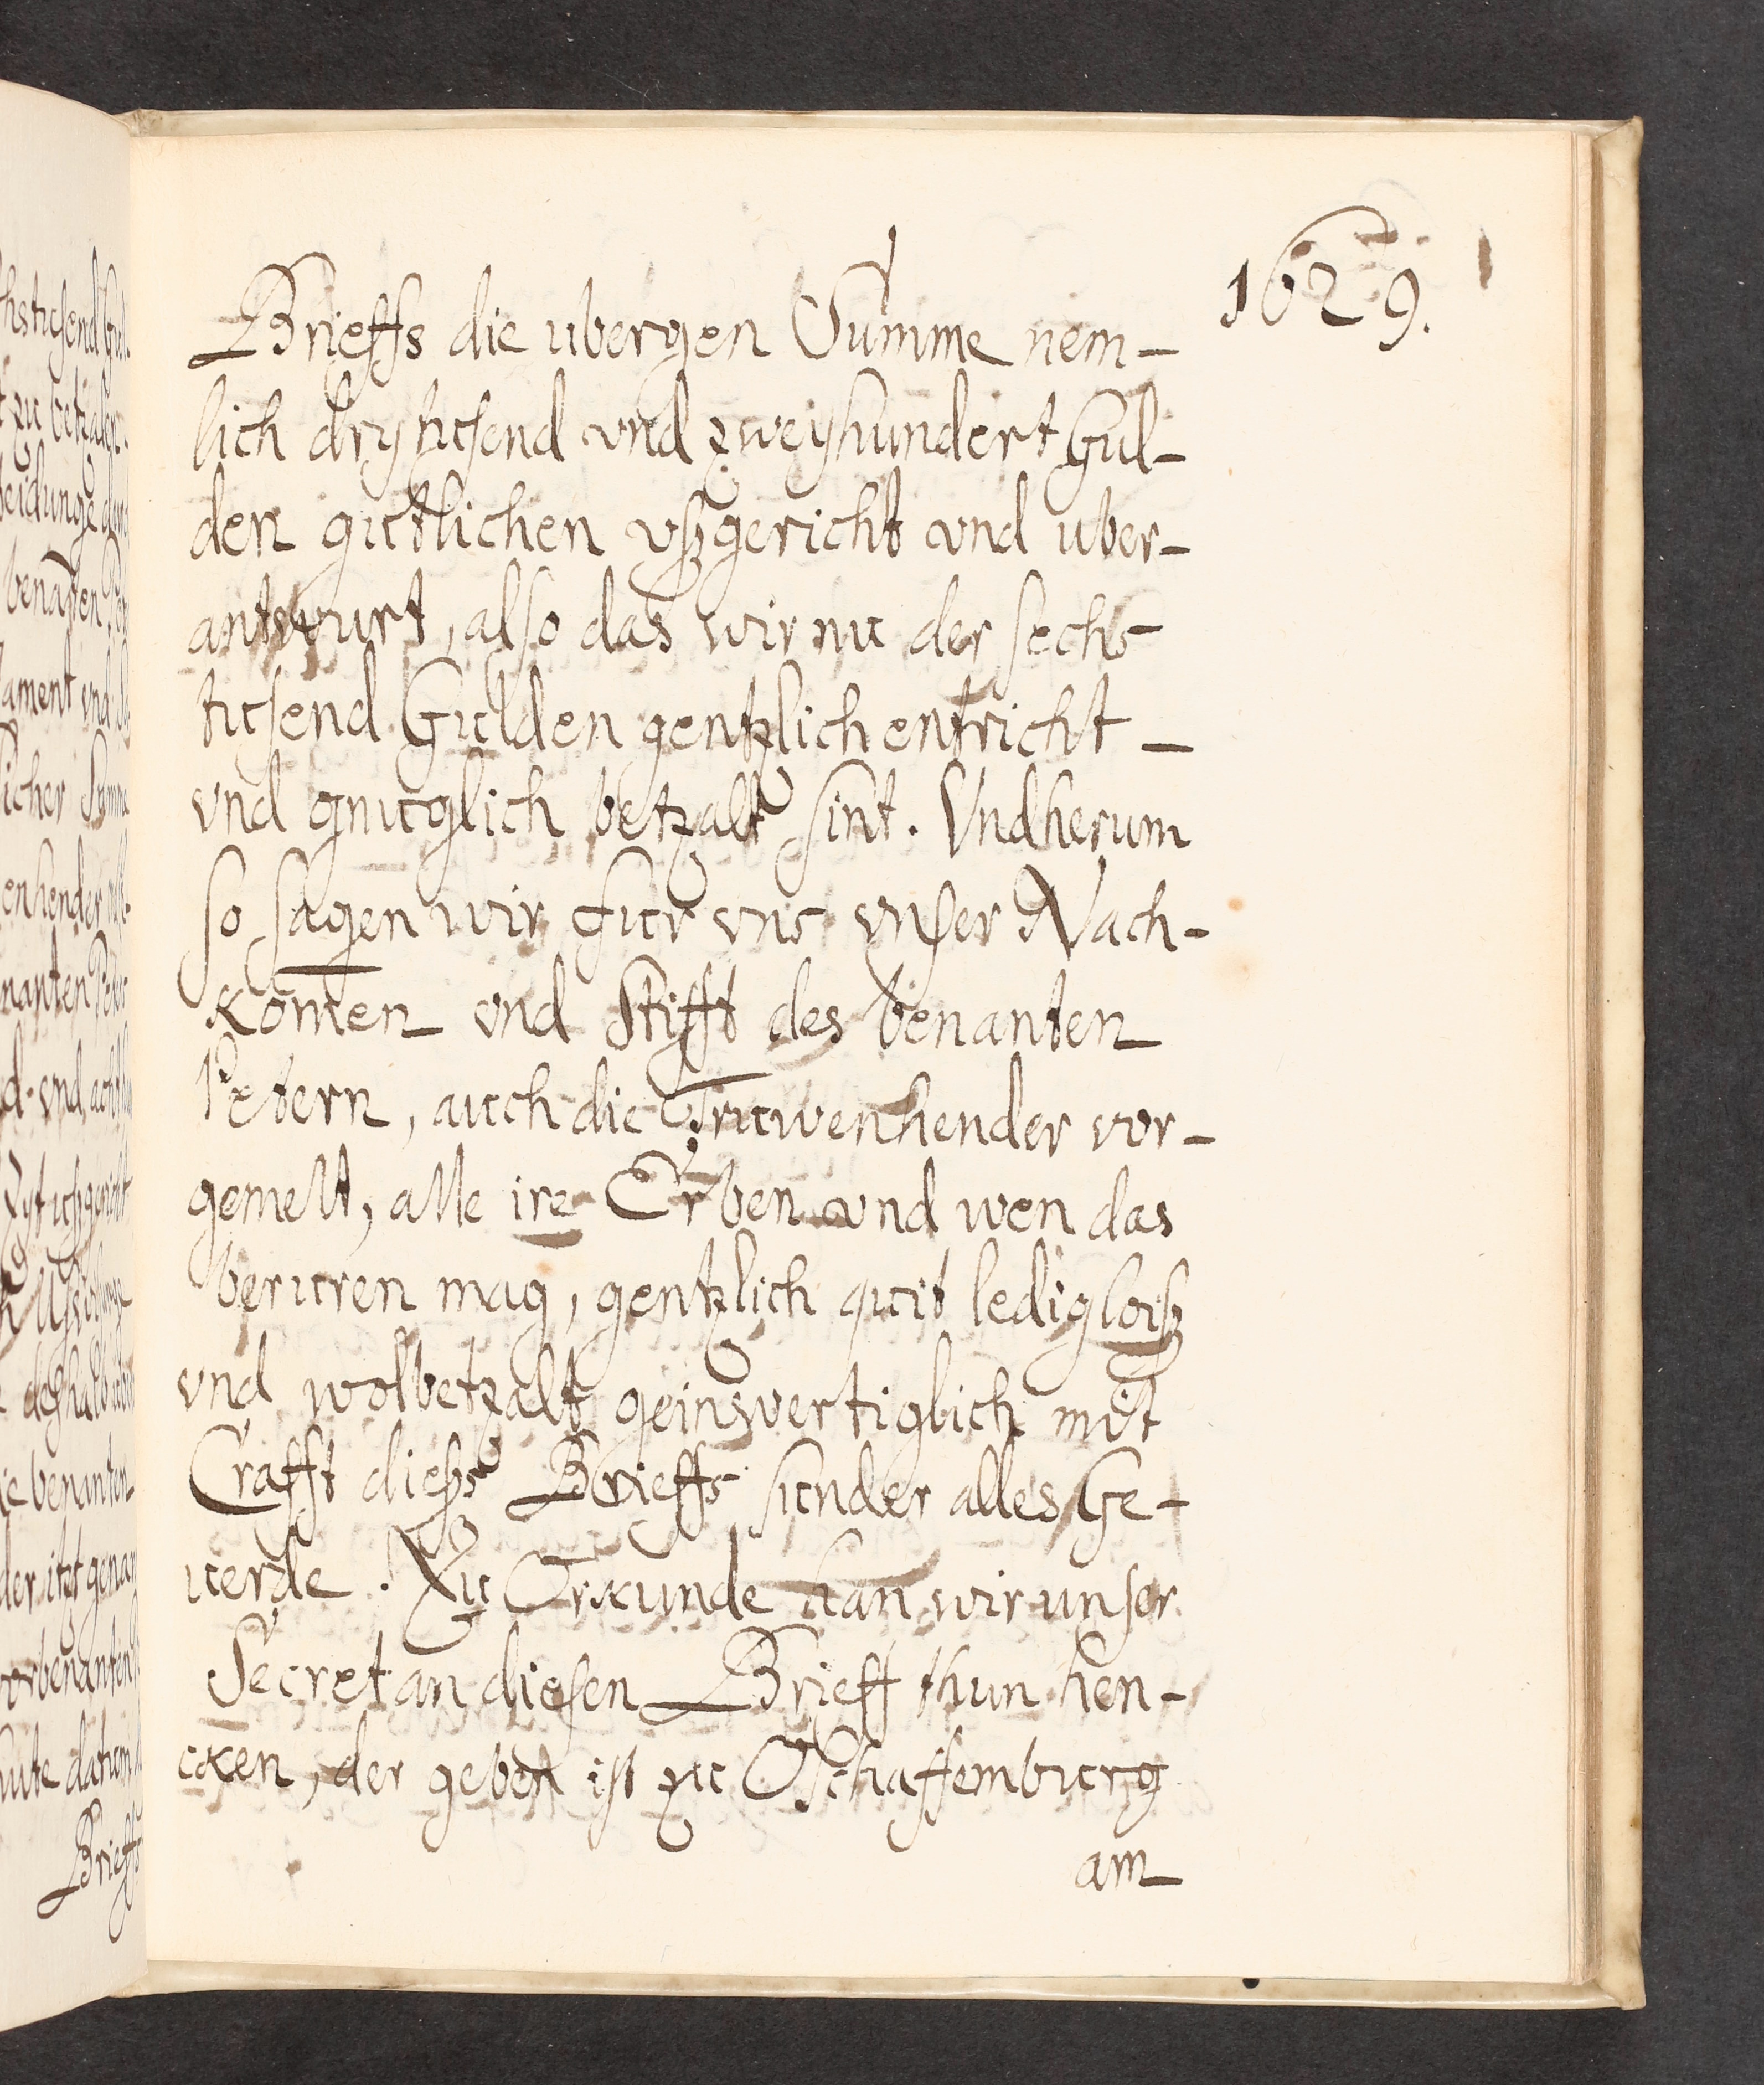 1629.
Brieffs die ubergen Summe nem-
lich drytusend vnd zweyhundert Gul-
den gutlichen vßgericht vnd uber-
antwurt, also das wir nu der sechs
tusend Gulden gentzlich entricht
vnd gnuglich betzalt sint. Vndherum
so sagen wir fur vns vnser Nach-
komen vnd Stifft des benanten
Petern, auch die Truwenhender vor-
gemelt, alle ire Erben vnd wen das
beruren mag, gentzlich quit ledig loiß
vnd wolbetzalt geinwertiglich mit
Crafft dießs Brieffs sunder alles Ge-
uerde. Zu Orkunde han wir unser
Secret an diesen Brieff thun hen-
cken, der geben ist zu Oschaffemburg
am